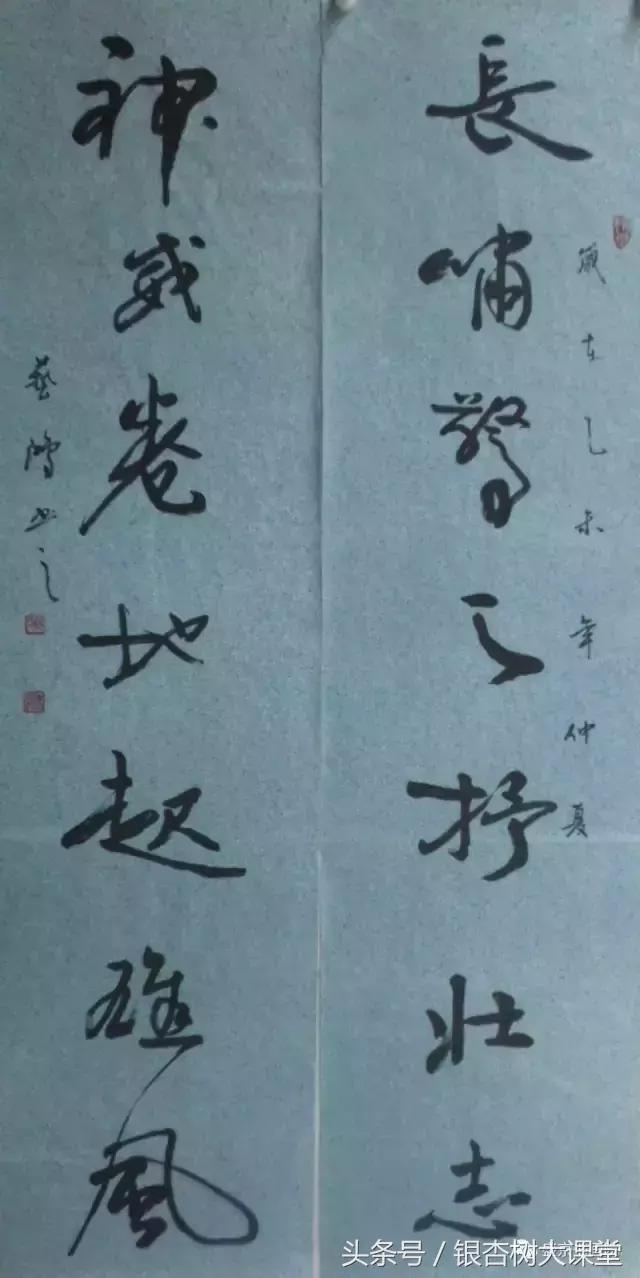 長嘯驚天抒壯志
歲在乙未年仲夏
神威卷地起雄風
藝鴻书之
头条号 / 银杏树大课堂